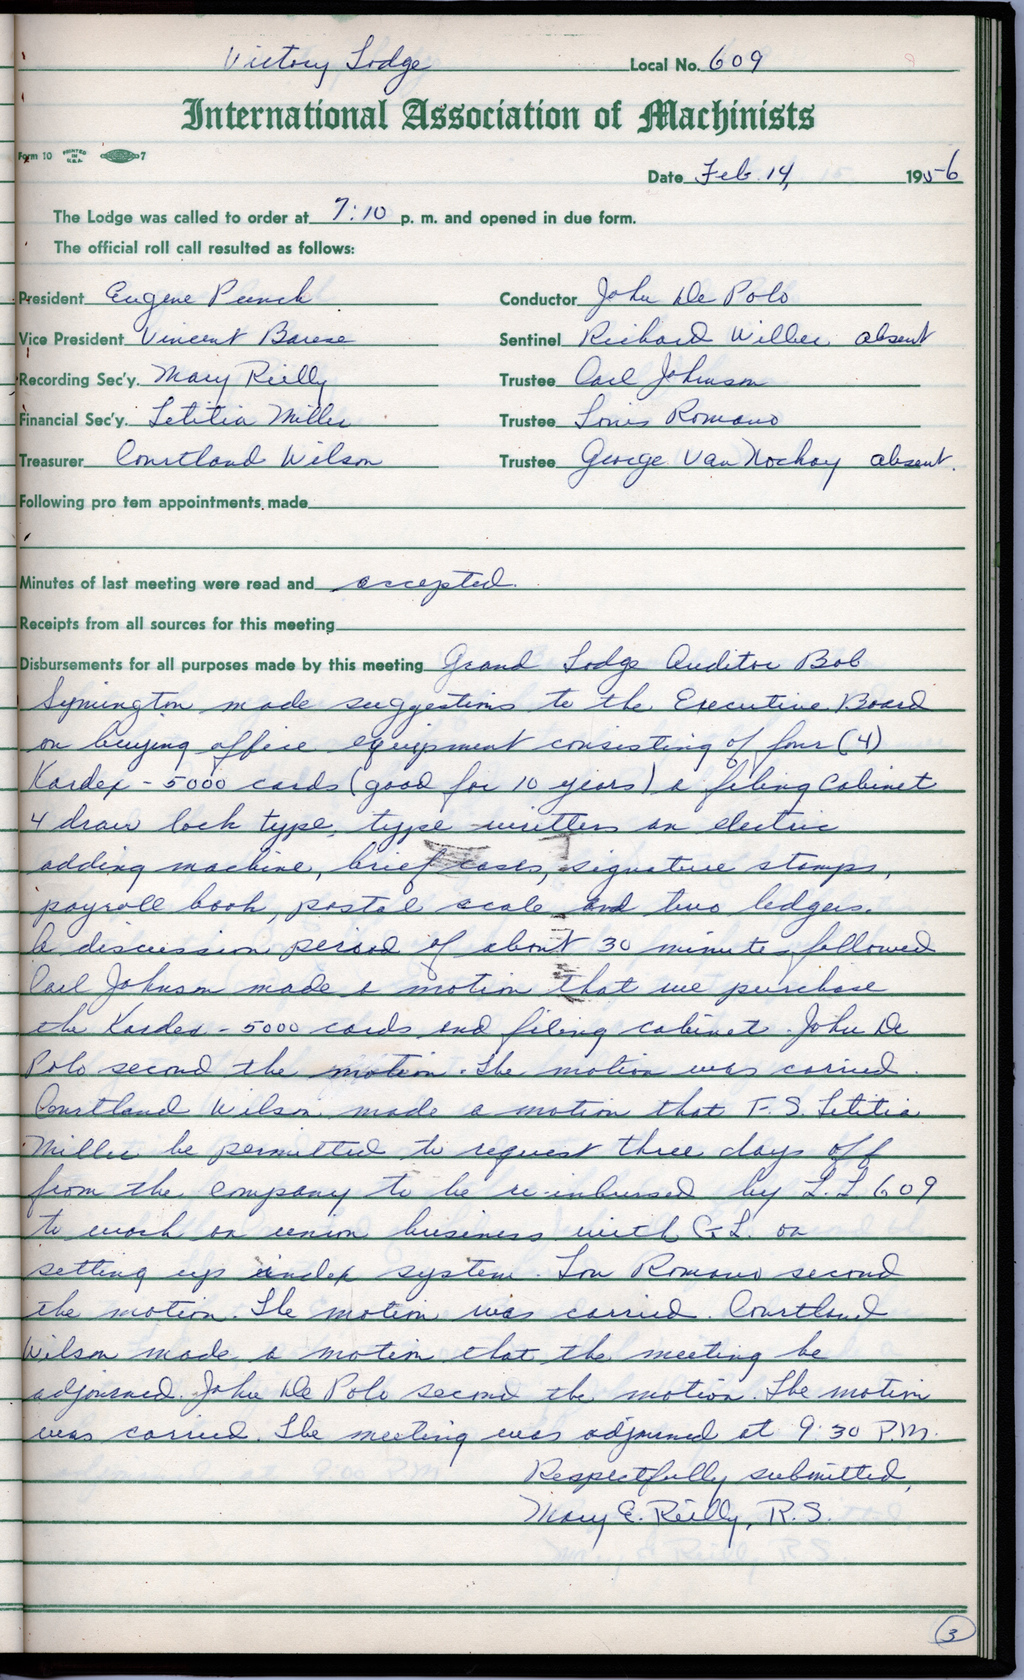 Victory Lodge Local No. 609
International Association of Machinists
Form 10 PRINTED IN U.S.A. 7
Date Feb. 14, 1956
The Lodge was called to order at 7:10 p. m. and opened in due form.
The official roll call resulted as follows:
President Eugene Punch Conductor John De Polo
Vice President Vincent Barese Sentinel Richard Willer absent
Recording Sec'y. Mary Reilly Trustee Carl Johnson
Financial Sec'y. Letitia Miller Trustee Louis Romano
Treasurer Courtland Wilson Trustee George Van absent.
Following pro tem appointments made
Minutes of last meeting were read and accepted.
Receipts from all sources for this meeting
Disbursements for all purposes made by this meeting Grand Lodge Auditor Bob
Symington made suggestions to the Executive Board
on buying office equipment consisting of four (4)
Kardex - 5000 cards (good for 10 years) a filing cabinet
4 draw lock type, type-writters an electric
adding machine, brief cases, signature stamps,
payroll book, postal scale and two ledgers.
A discussion period of about 30 minutes followed
Carl Johnson made a motion that we purchase
the Kardex - 5000 cards and filing cabinet. John De
Polo second the motion. The motion was carried.
Courtland Wilson made a motion that F.S. Letitia
Miller be permitted to request three days off
from the company to be re-inbursed by L.L 609
to work on union business with G L. on
setting up index system. Lou Romano second
the motion. The motion was carried. Courtland
Wilson made a motion that the meeting be
adjourned. John De Polo second the motion. The motion
was carried. The meeting was adjourned at 9:30 P.M.
Respectfully submitted,
Mary E. Reilly, R.S.
3